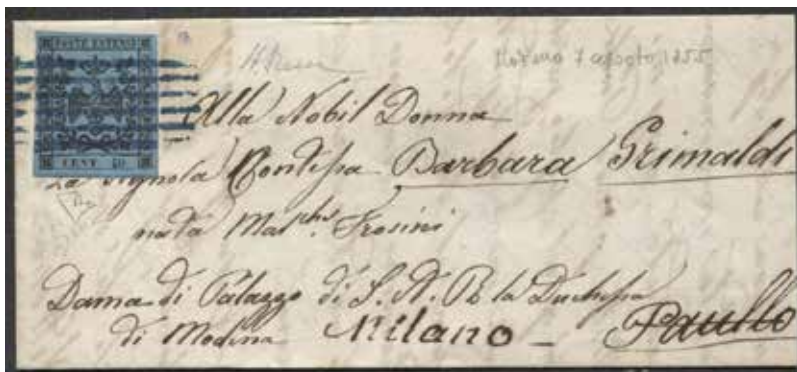 POSTE ESTENSI
CENT. 40
7 agosto 1855
Alla Nobil Donna
La Signora Contessa Barbara Grimaldi
nata Frosini
Dama di Palazzo di S. A. R. la Duchessa
di Modena Milano - Paullo